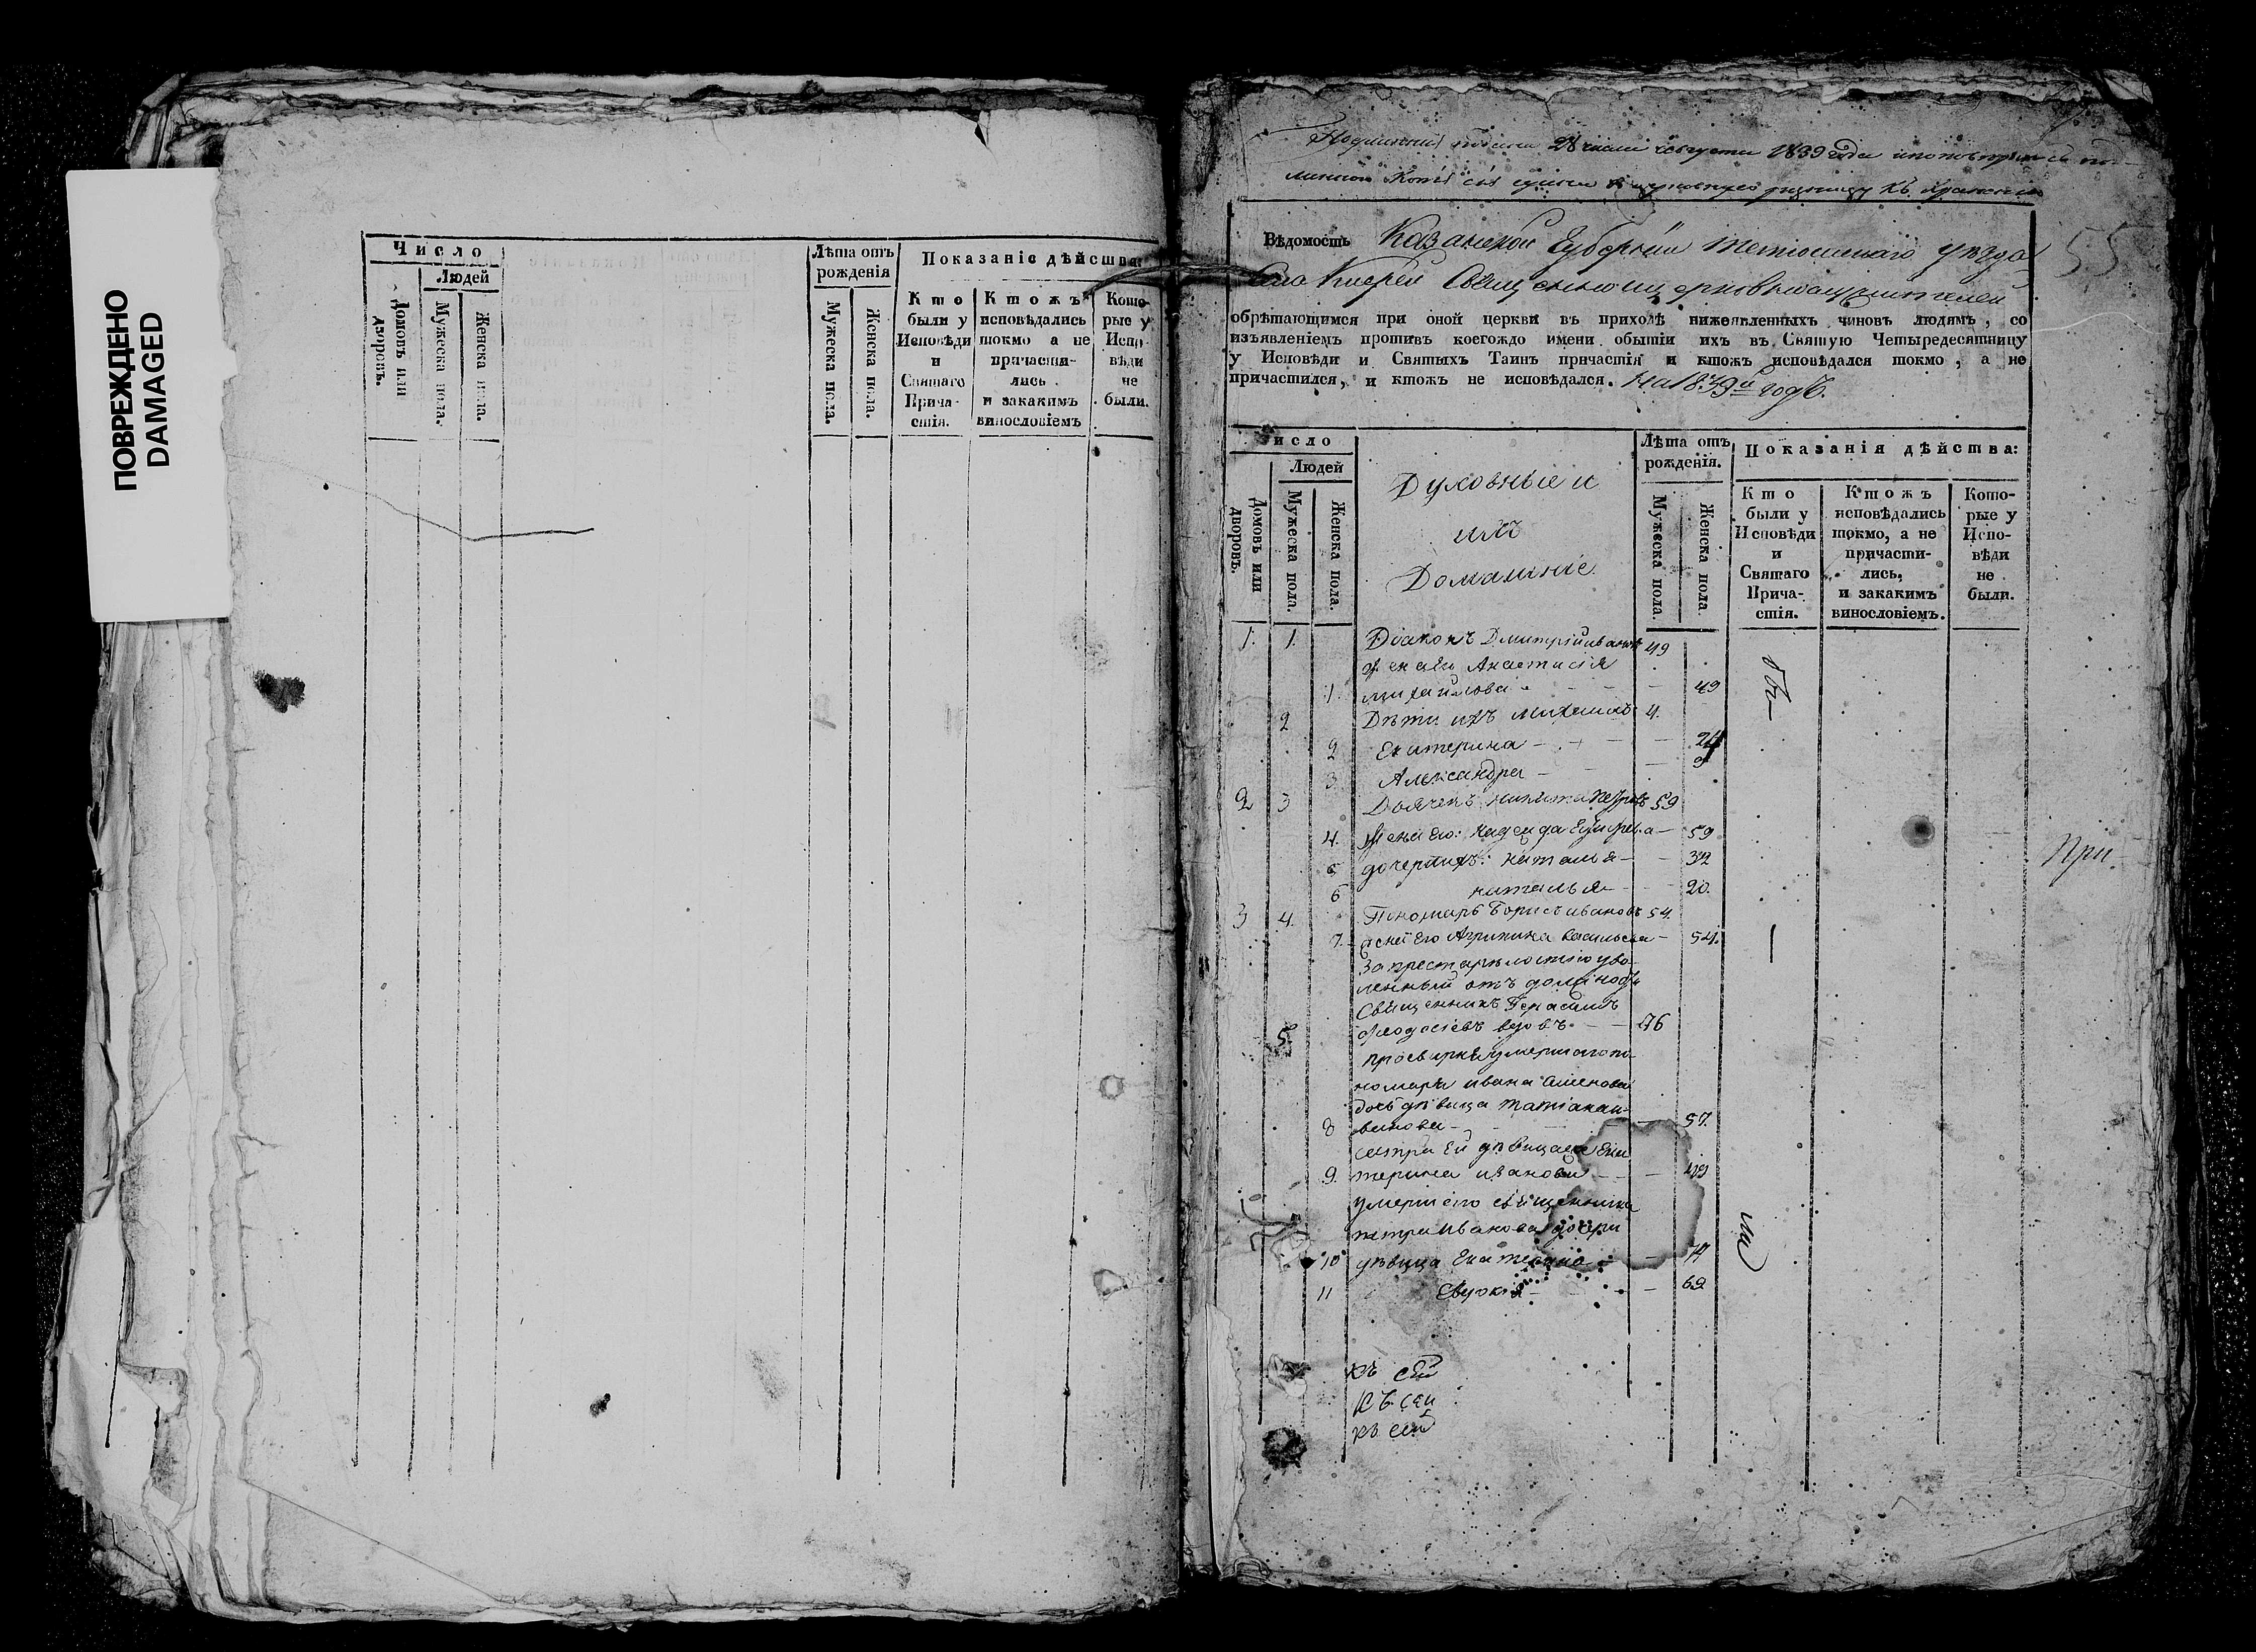 ПОВРЕЖДЕНО
DAMAGED
Число
Людей
Домовъ или дворовъ.
Мужеска пола.
Женска пола.
Лѣта отъ
рожденія
Мужеска пола.
Женска пола.
Показаніе дѣйства:
Кто
были у
Исповѣди
и
Святаго
Прича-
стія.
Ктожъ
исповѣдались
токмо а не
причасти-
лись
и закакимъ
винословіемъ
Кото-
рые у
Испо-
вѣди
не
были.
28 августа 1839 года
къ
55
Вѣдомость Казанской Губерніи Тетюшскаго уѣзда
Села
обрѣтающимся при оной церкви въ приходѣ нижеявленныхъ чиновъ людямъ, со
изъявленіемъ противъ коегождо имени обытіи ихъ въ Святую Четыредесятницу
у Исповѣди и Святыхъ Таинъ причастія и ктожъ исповѣдался токмо, а не
причастился, и ктожъ не исповѣдался. На 1839й годъ.
Число
Людей
Домовъ или дворовъ.
Мужеска пола.
Женска пола.
Духовные и
ихъ
Домашніе.
Лѣта отъ
рожденія.
Мужеска пола.
Женска пола.
Показанія дѣйства:
Кто
были у
Исповѣди
и
Святаго
Прича-
стія.
Ктожъ
исповѣдались
токмо, а не
причасти-
лись,
и закакимъ
винословіемъ.
Кото-
рые у
Испо-
вѣди
не
были.
1. 1. Діаконъ Дмитрій Ивановъ 49
жена его Анастасія
1. Михайлова 49
2 Дѣти ихъ Михаилъ 4.
2 Екатерина 24
3 Александра 9
2 3 Дьячекъ Никита Петровъ 59
4. Жена его: Надежда 59
5 дочери ихъ: Наталья 32
6 Наталья 20.
3 4. Пономарь Борисъ Ивановъ 54.
7. жена его Агрипина Васильева 54.
За престарѣлостію уво-
ленный отъ должности
Священникъ Герасимъ
5. Феодосіевъ вдовъ 76
просвирня умершаго по-
номаря Ивана Семенова
дочь дѣвица Татіана И-
8 ванова 57.
сестра ей дѣвица Ека
9. терина Иванова 49
умершего священника
Петра Иванова дочери
10 дѣвица Екатерина
11 Евдокія 62
бы
ли
При
къ сей
къ сей
къ сей